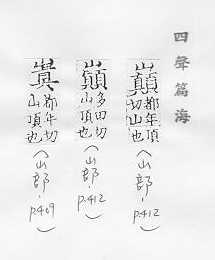 四聲篇海
巔
都年頂
切山也
(山部.P.412)
多田切
山頂也
(山部.P.412)
都年切
山頂也
(山部.P.409)